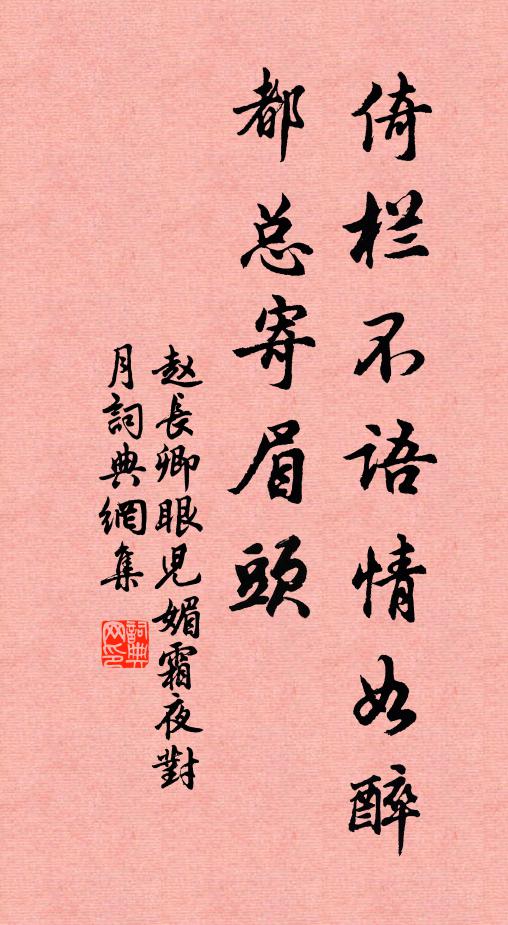 倚栏不语情如醉
都总寄眉头
赵長卿眼児媚霜夜對
月詞典網集
詞典
网印